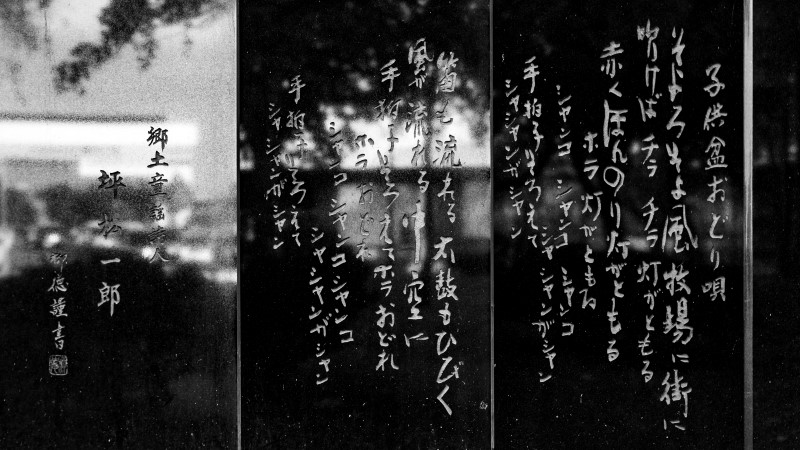 子供盆おどり唄
そよろそよ風牧場に街に
吹けばチラチラ灯がともる
赤くほんのり灯がともる
ホラ灯がともる
シャンコシャンコシャンコ
シャシャンがシャン
手拍子そろえて
シャシャンがシャン
笛も流れる太鼓もひびく
風が流れる中空に
手拍子そろえてホラおどれ
ホラおどれ
シャンコシャンコシャンコ
シャシャンがシャン
手拍子そろえて
シャシャンがシャン
郷土童謡詩人
坪松一郎
謹書